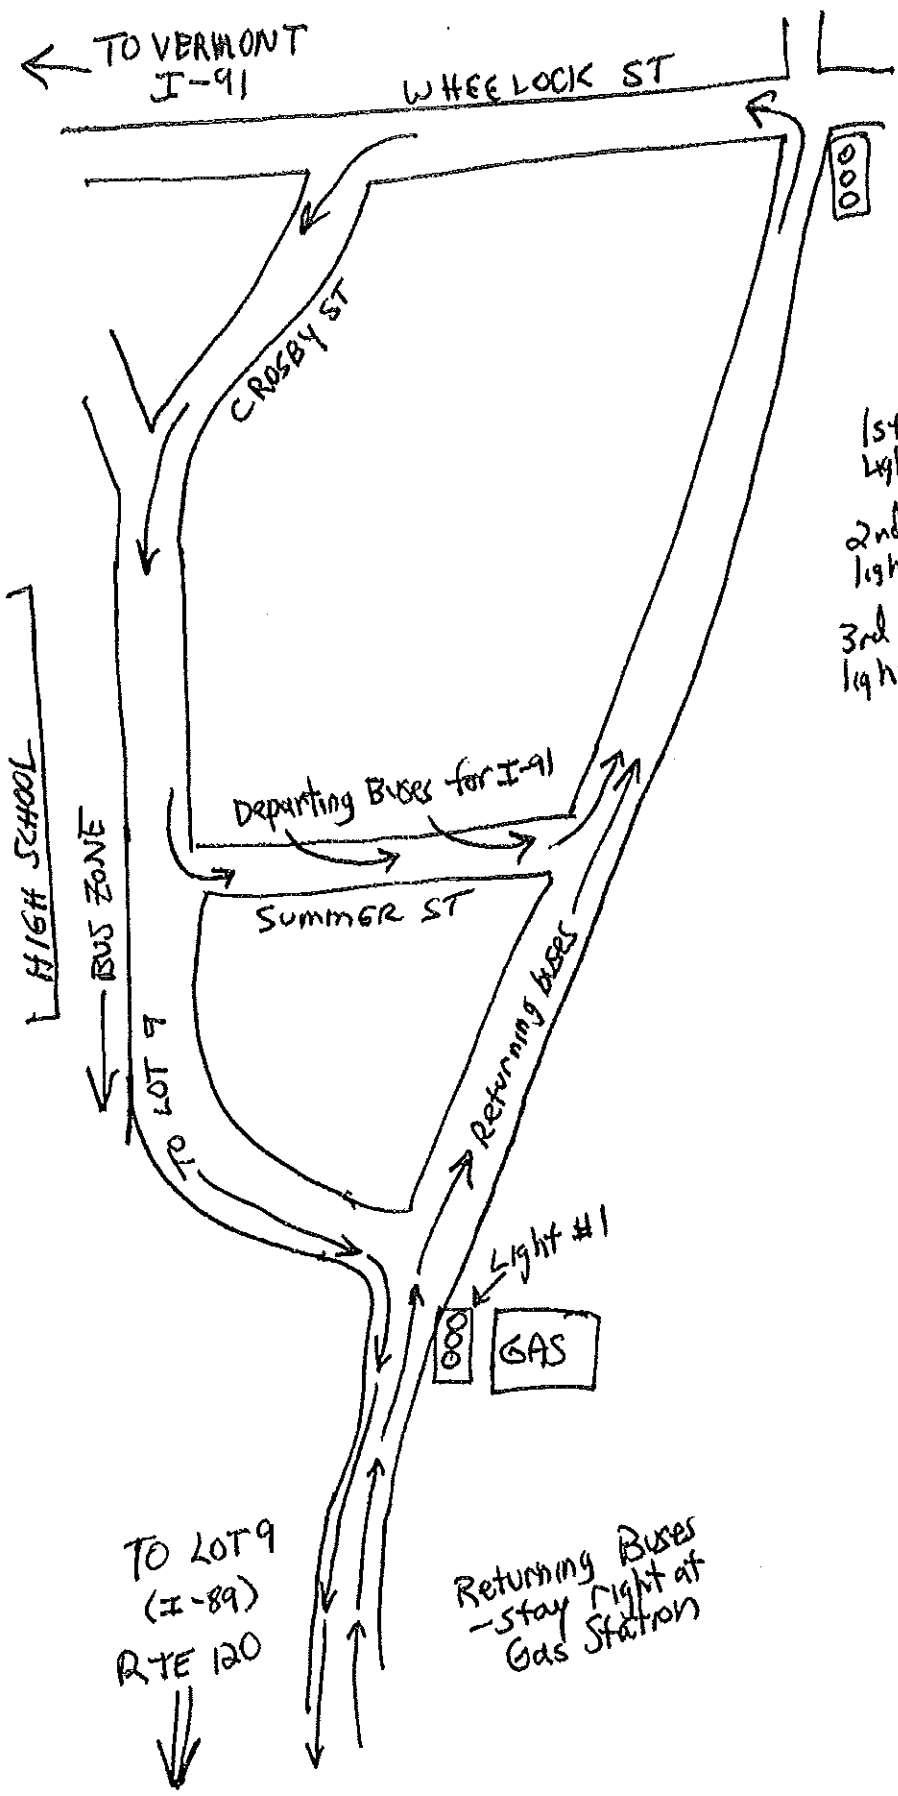 TO VERMONT
I-91
WHEELOCK ST
CROSBY ST
1st
2nd
3rd
HIGH SCHOOL
BUS ZONE
Departing Buses for I-91
SUMMER ST
Returning buses
TO LOT 9
Light #1
GAS
TO LOT 9
(I-89)
RTE 120
Returning Buses
-stay right at
Gas Station